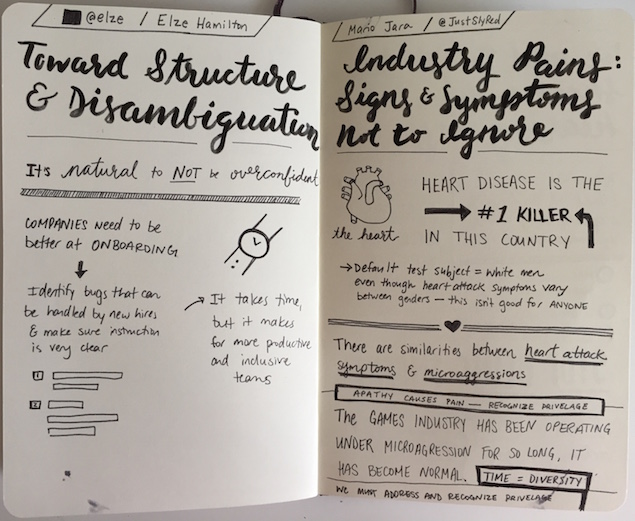 @elze / Elze Hamilton
Toward Structure
& Disambiguation
It's natural to NOT be overconfident
COMPANIES need to be
better at ONBOARDING
Identify bugs that can
be handled by new hires
& make sure instruction
is very clear
It takes time,
but it makes
for more productive
and inclusive
teams
1
2
Mario Jara / @JustSlyRed
Industry Pains:
Signs & Symptoms
Not to Ignore
the heart
HEART DISEASE IS THE
#1 KILLER
IN THIS COUNTRY
Default test subject = white men
even though heart attack symptoms vary
between genders — this isn't good for ANYONE
There are similarities between heart attack
symptoms & microaggressions
APATHY CAUSES PAIN — RECOGNIZE PRIVELAGE
The GAMES INDUSTRY HAS BEEN OPERATING
UNDER MICROAGRESSION FOR SO LONG, IT
HAS BECOME NORMAL. TIME = DIVERSITY
WE MUST ADDRESS AND RECOGNIZE PRIVELAGE